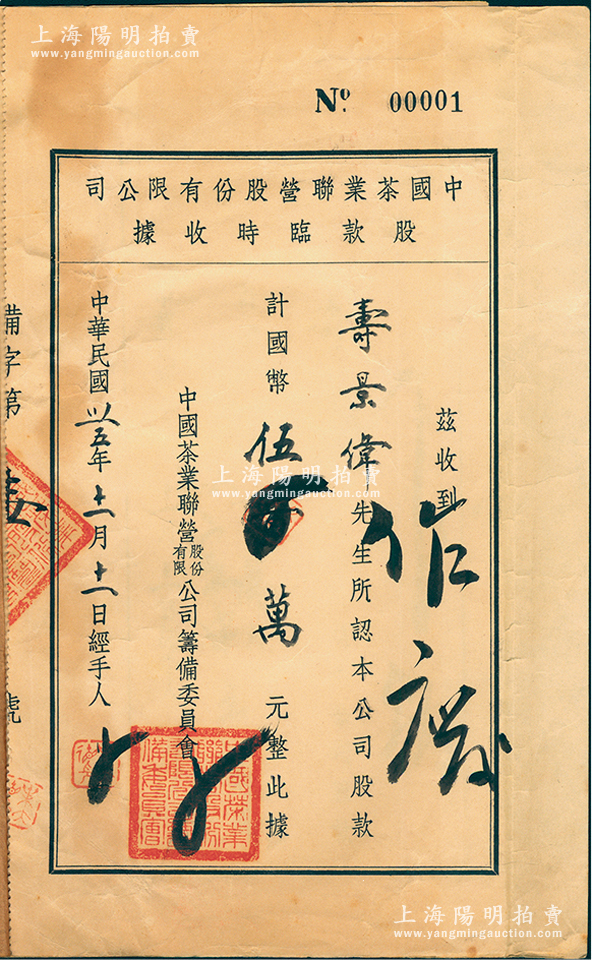 上海陽明拍賣
www.yangmingauction.com
Nº 00001
中國茶業聯營股份有限公司
股款臨時收據
茲收到
壽景偉先生所認本公司股款
計國幣伍萬元整此據
中國茶業聯營股份有限公司籌備委員會
中華民國卅五年十一月十一日經手人
作廢
備字第
號
中國茶業聯營股份有限公司籌備委員會
上海陽明拍賣
www.yangmingauction.com
上海陽明拍賣
www.yangmingauction.com